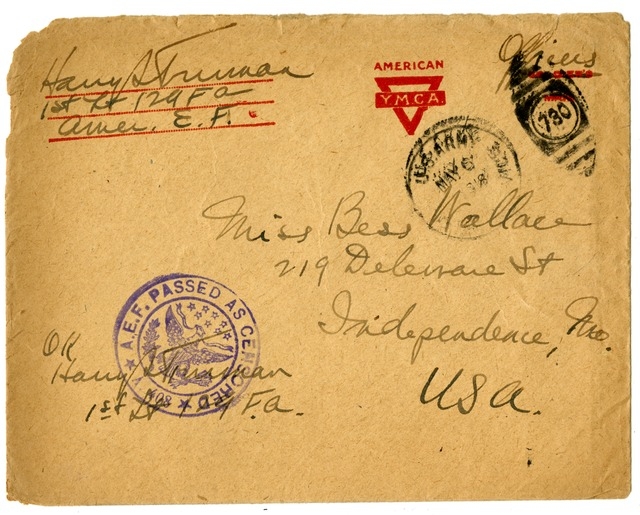 Harry S Truman
1st Lt 129 F a
Amer. E. F.
AMERICAN
Y.M.C.A.
Officers
730
U.S. ARMY
MAY 6
Miss Bess Wallace
219 Deleware St
Independence, Mo.
USA.
A.E.F. PASSED AS CENSORED
OK
Harry S Truman
1st Lt F.a.